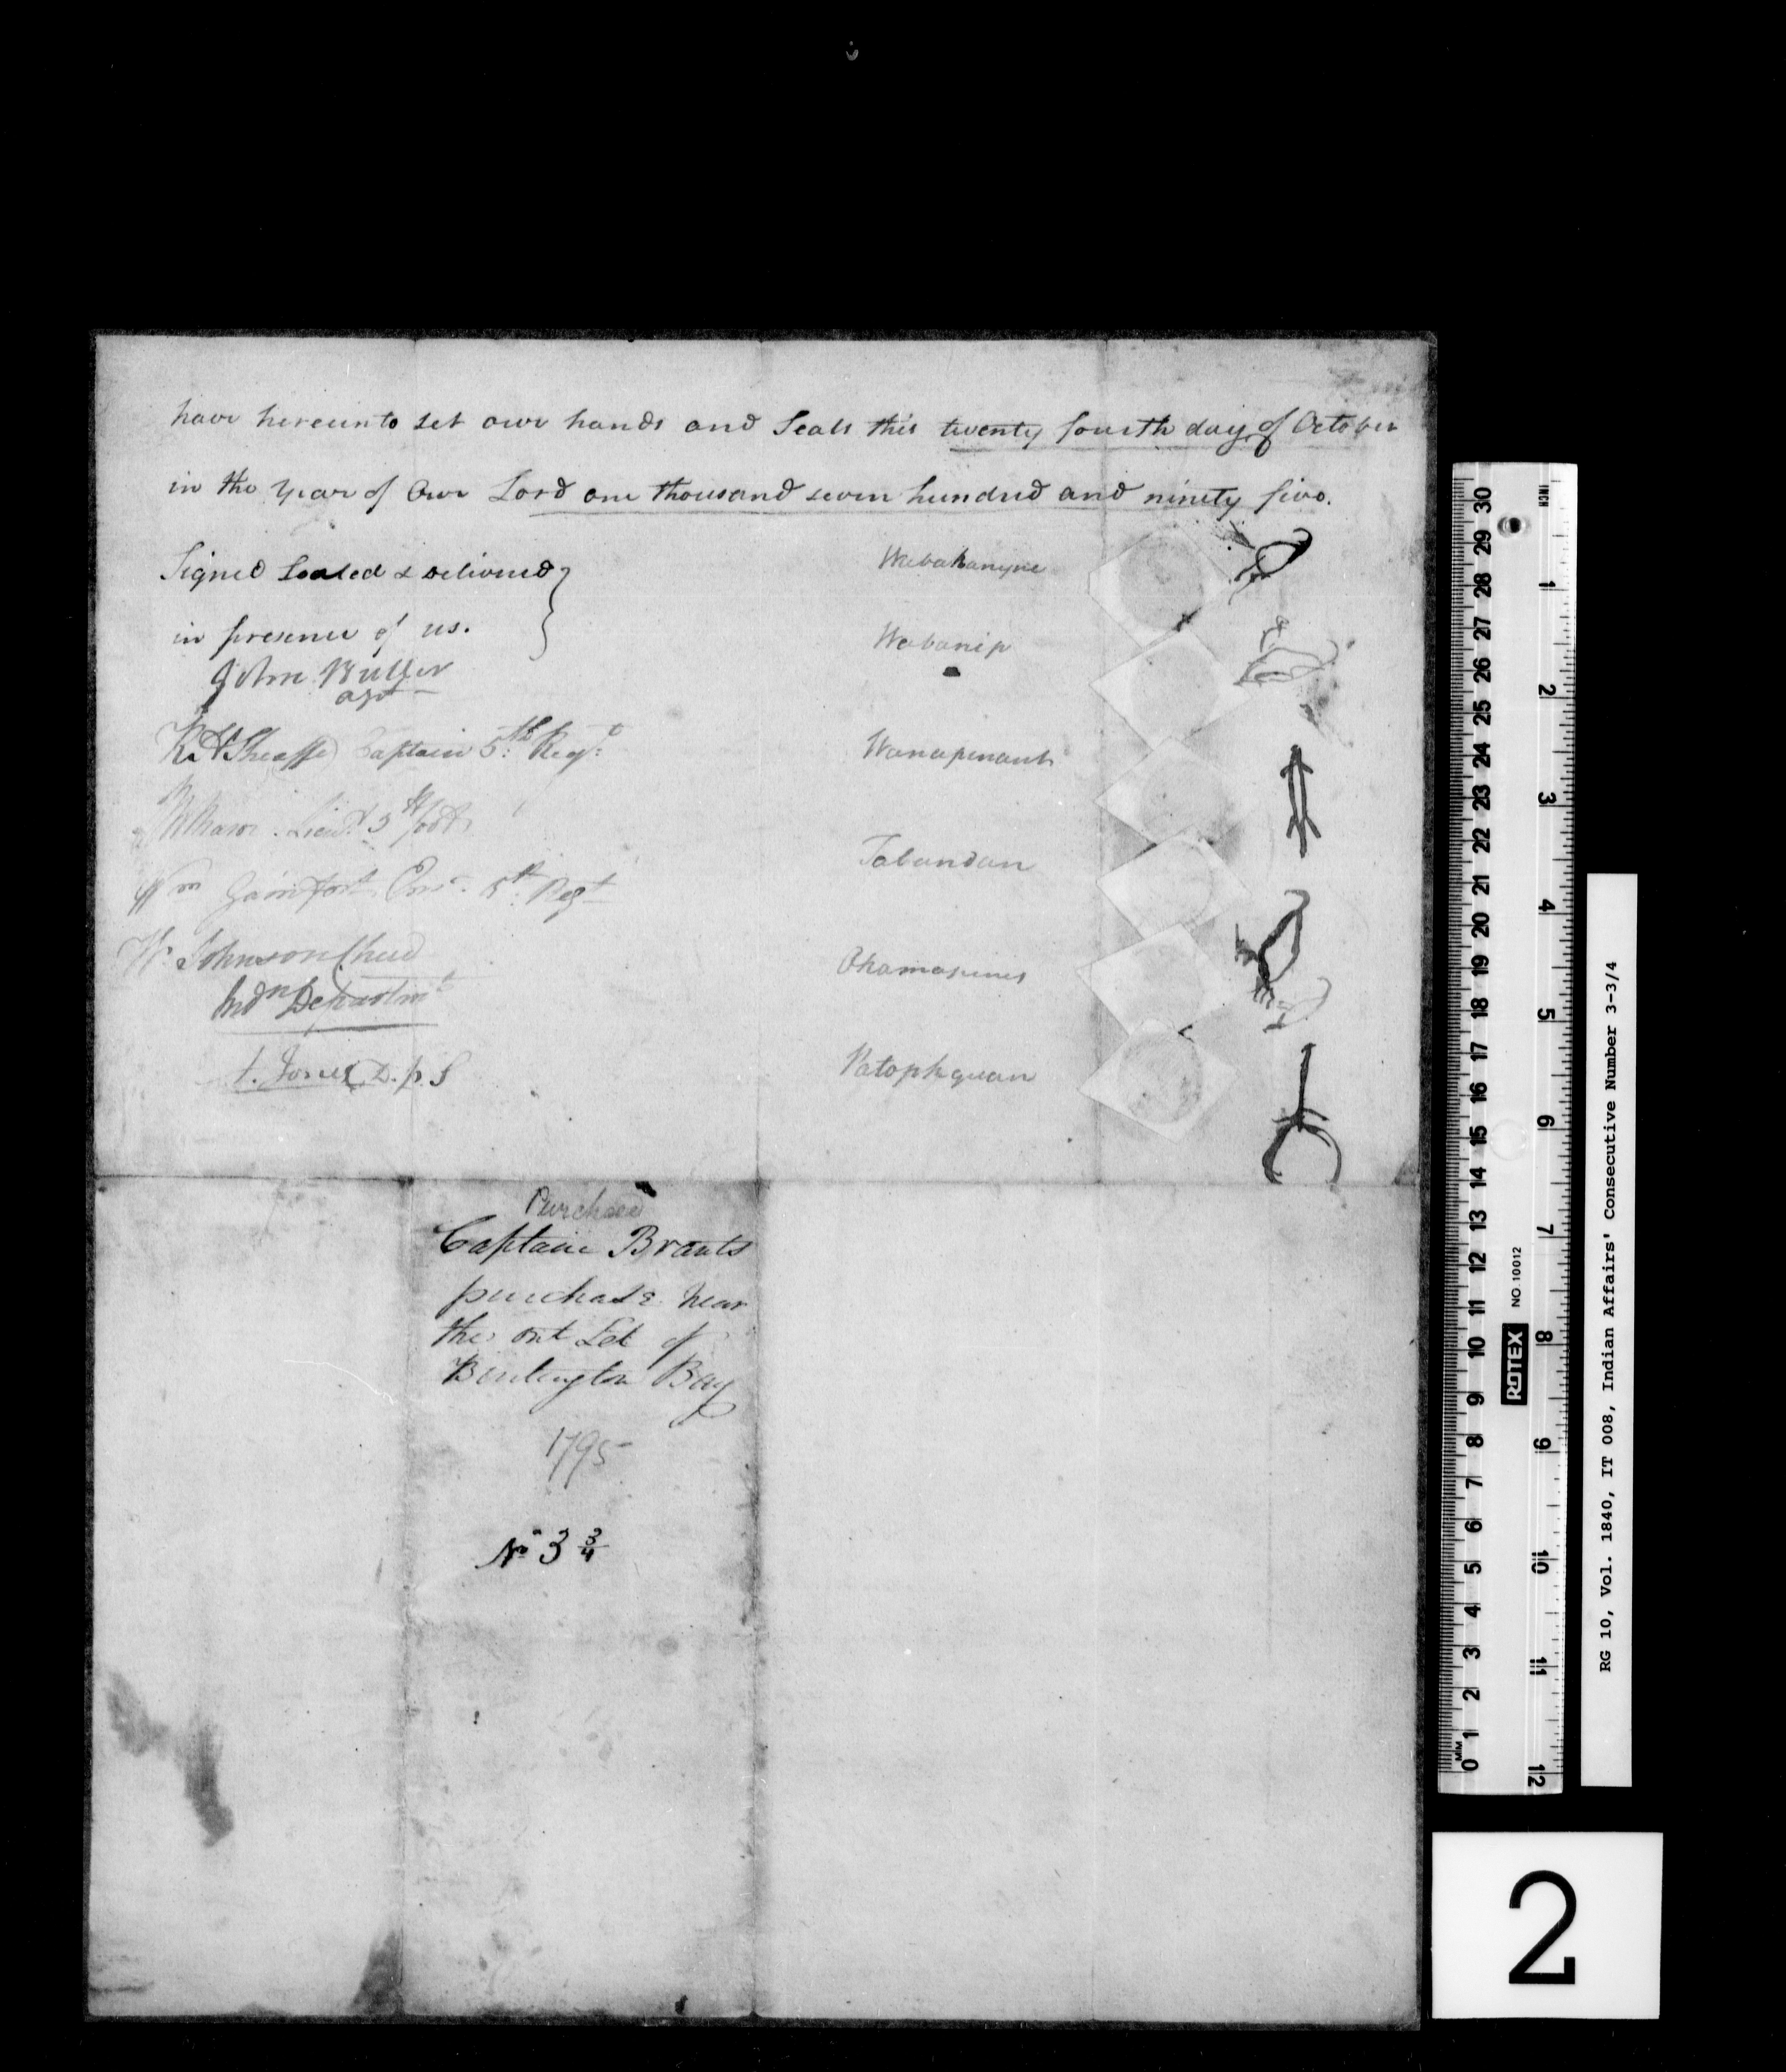 have hereunto set our hands and Seals this twenty fourth day of October
in the Year of Our Lord one thousand seven hundred and ninety five.
Signed Sealed & Delivered
in presence of us.
John Butler
agt
RH Sheaffe Captain 5th Regt
Lieut 5th foot
Wm Gainfort Ens. 5th Regt
W Johnson Chew
Indn Departmt
A. Jones D.p.S
Wabakanyne
Wabanip
Wanapenant
Tabandan
Okamapenes
Patophquan
Purchase
Captain Brants
purchase near
the out Let of
Burlington Bay
1795
No 3 3/4
RG 10, Vol. 1840, IT 008, Indian Affairs' Consecutive Number 3-3/4
INCH
1 2 3 4 5 6 7 8 9 10 11 12
30 29 28 27 26 25 24 23 22 21 20 19 18 17 16 15 14 13 12 11 10 9 8 7 6 5 4 3 2 1 0
M/M
ROTEX NO.10012
2